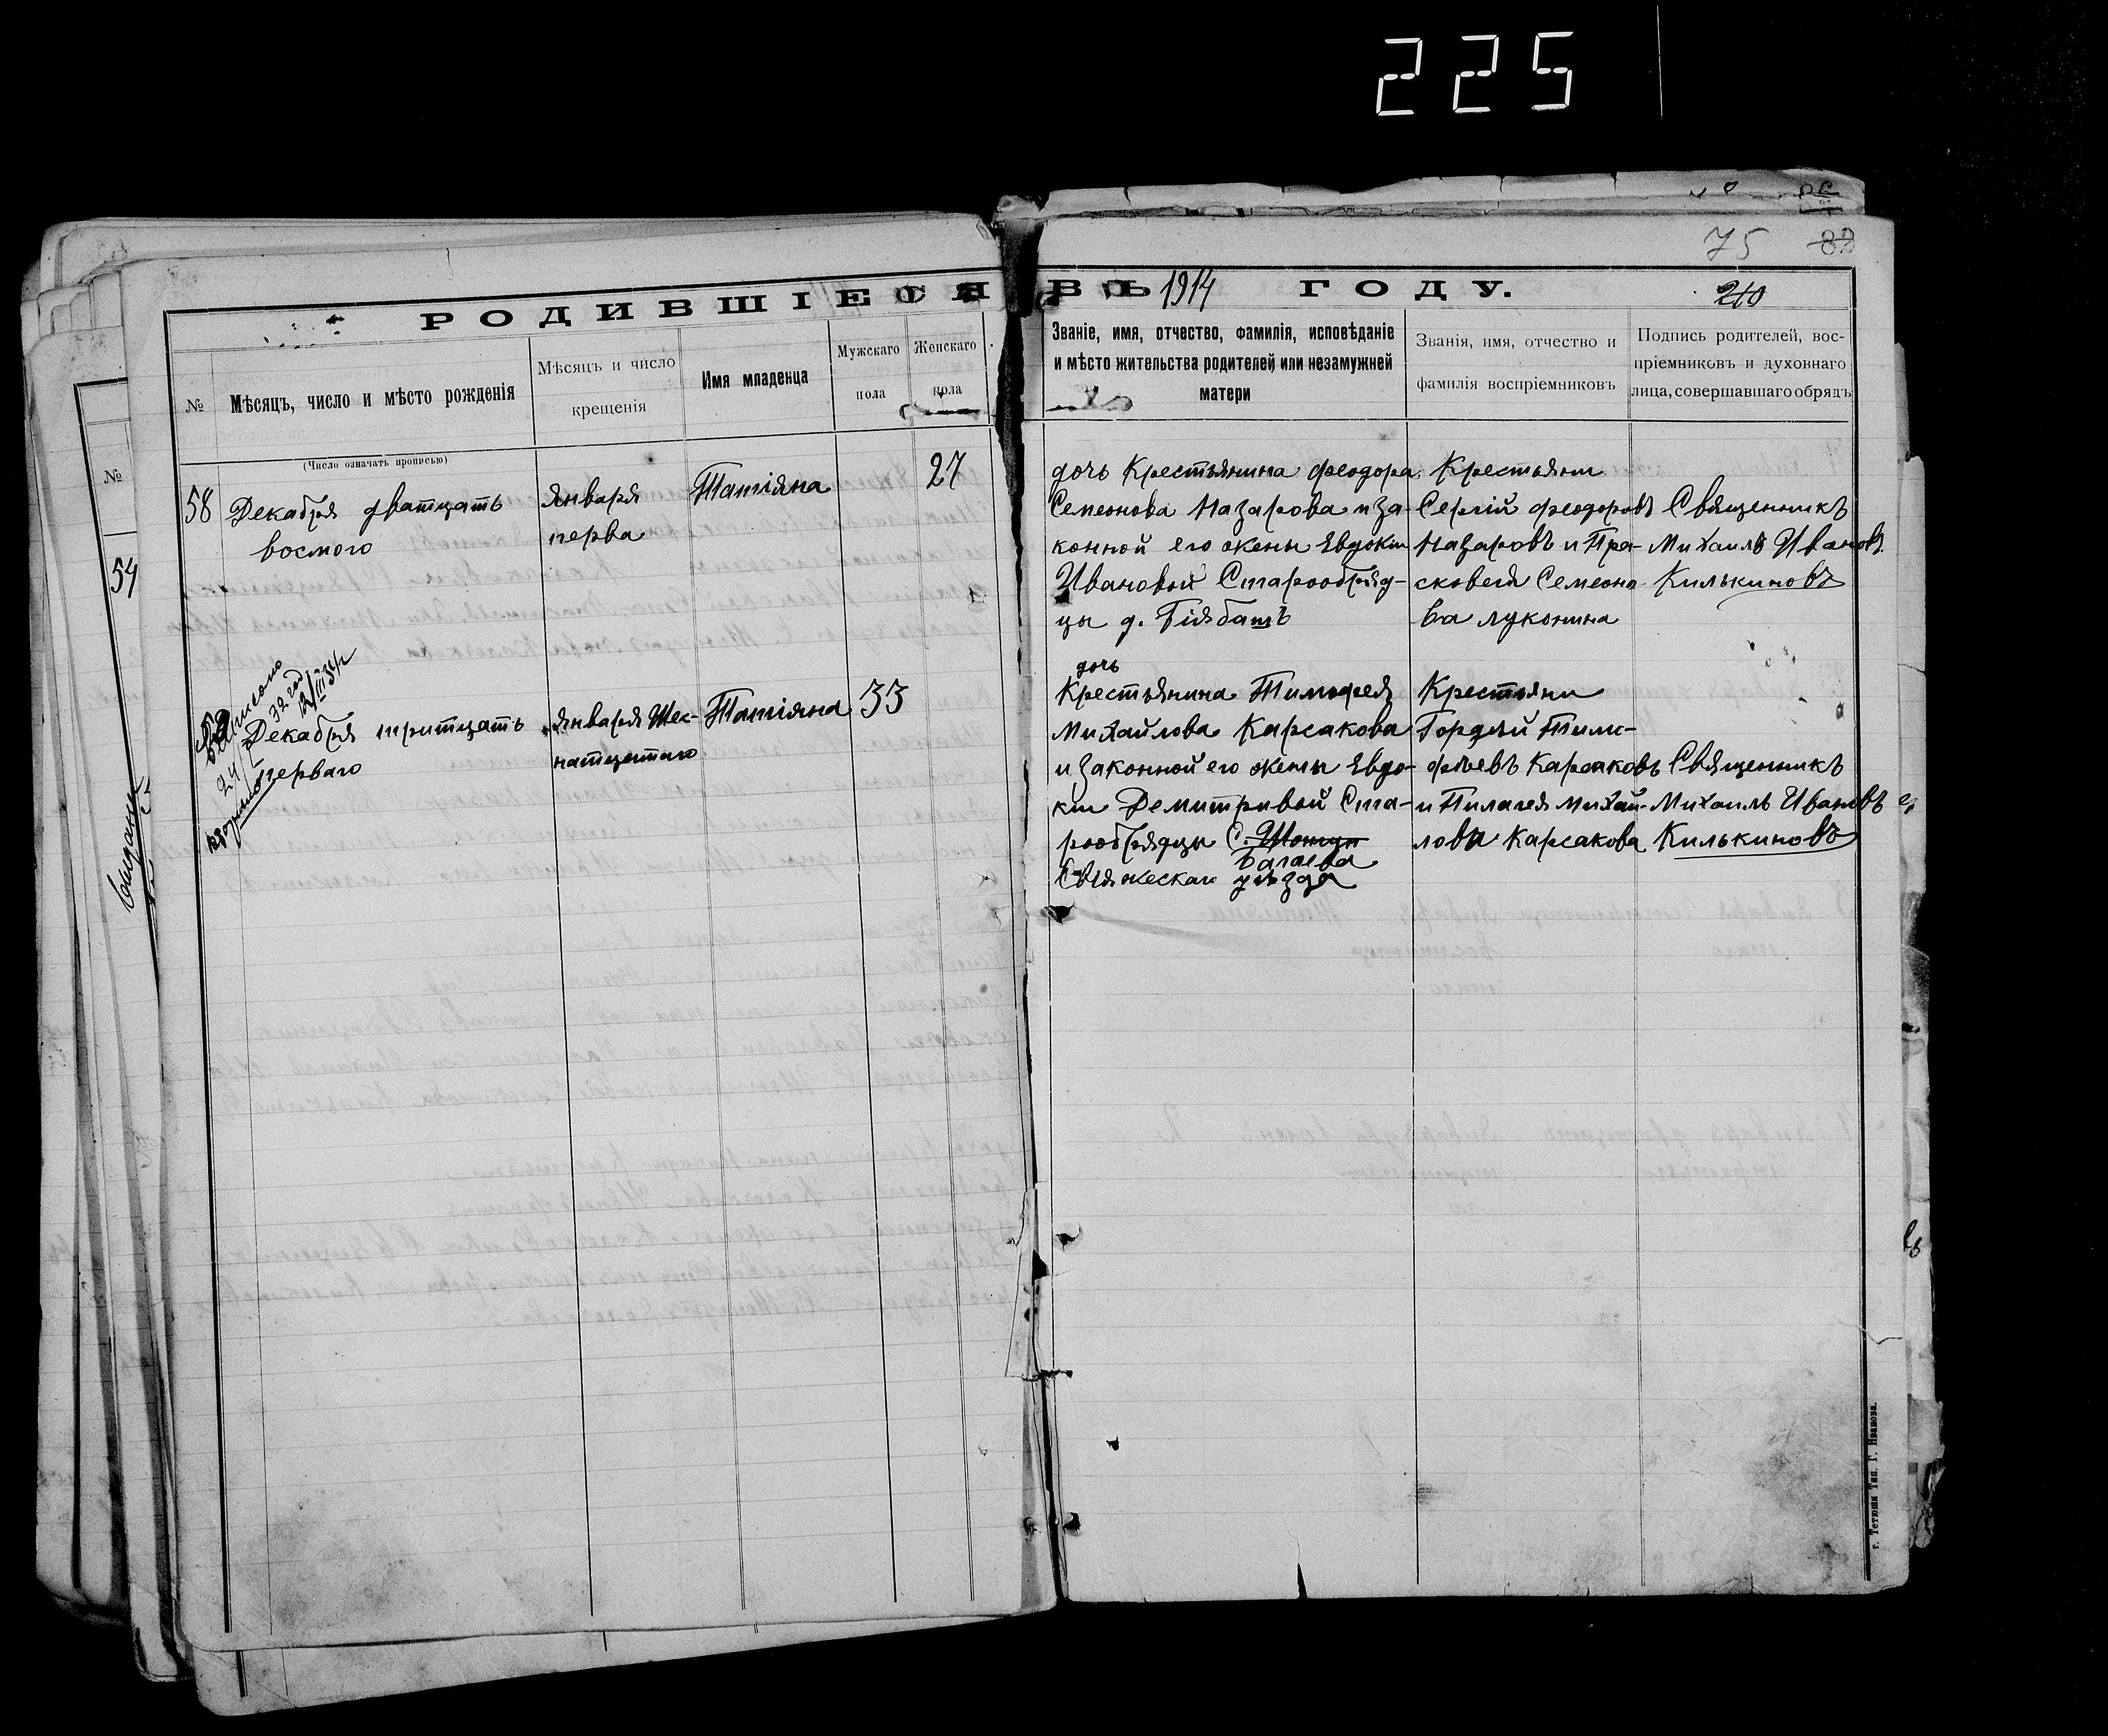 225
75 82
РОДИВШІЕСЯ ВЪ 1914 ГОДУ.
210
№
Мѣсяцъ, число и мѣсто рожденія
Мѣсяцъ и число
крещенія
Имя младенца
Мужскаго
пола
Женскаго
пола
Званіе, имя, отчество, фамилія, исповѣданіе
и мѣсто жительства родителей или незамужней
матери
Званія, имя, отчество и
фамилія воспріемниковъ
Подпись родителей, вос-
пріемниковъ и духовнаго
лица, совершавшаго обрядъ
(Число означать прописью)
58
Декабря дватцать
восмого
Января
перва
Татіяна
27
дочь Крестьянина Феодора
Семеонова Назарова и за-
конной его жены Евдокіи
Ивановой Старообряд-
цы д.
Крестьяни
Сергій Феодоровъ
Назаровъ и Пра-
сковея Семеоно
ва Луконина
Священникъ
Михаилъ Ивановъ
Килькиновъ
59
Декабря тритцать
перваго
Января Шес-
натцетаго
Татіяна
33
дочь
Крестьянина Тимофея
Михайлова Карсакова
и законной его жены Евдо-
кіи Демитривой Ста-
рообрядцы С. Шонгут
Багаева
Свіяжескаго уѣзда
Крестьяни
Гордѣй Тимо-
фѣевъ Карсаковъ
и Пилагея Михай-
лова Карсакова
Священникъ
Михаилъ Ивановъ
Килькиновъ
№
54
г. Тетюши Тип. Г. Иванова.